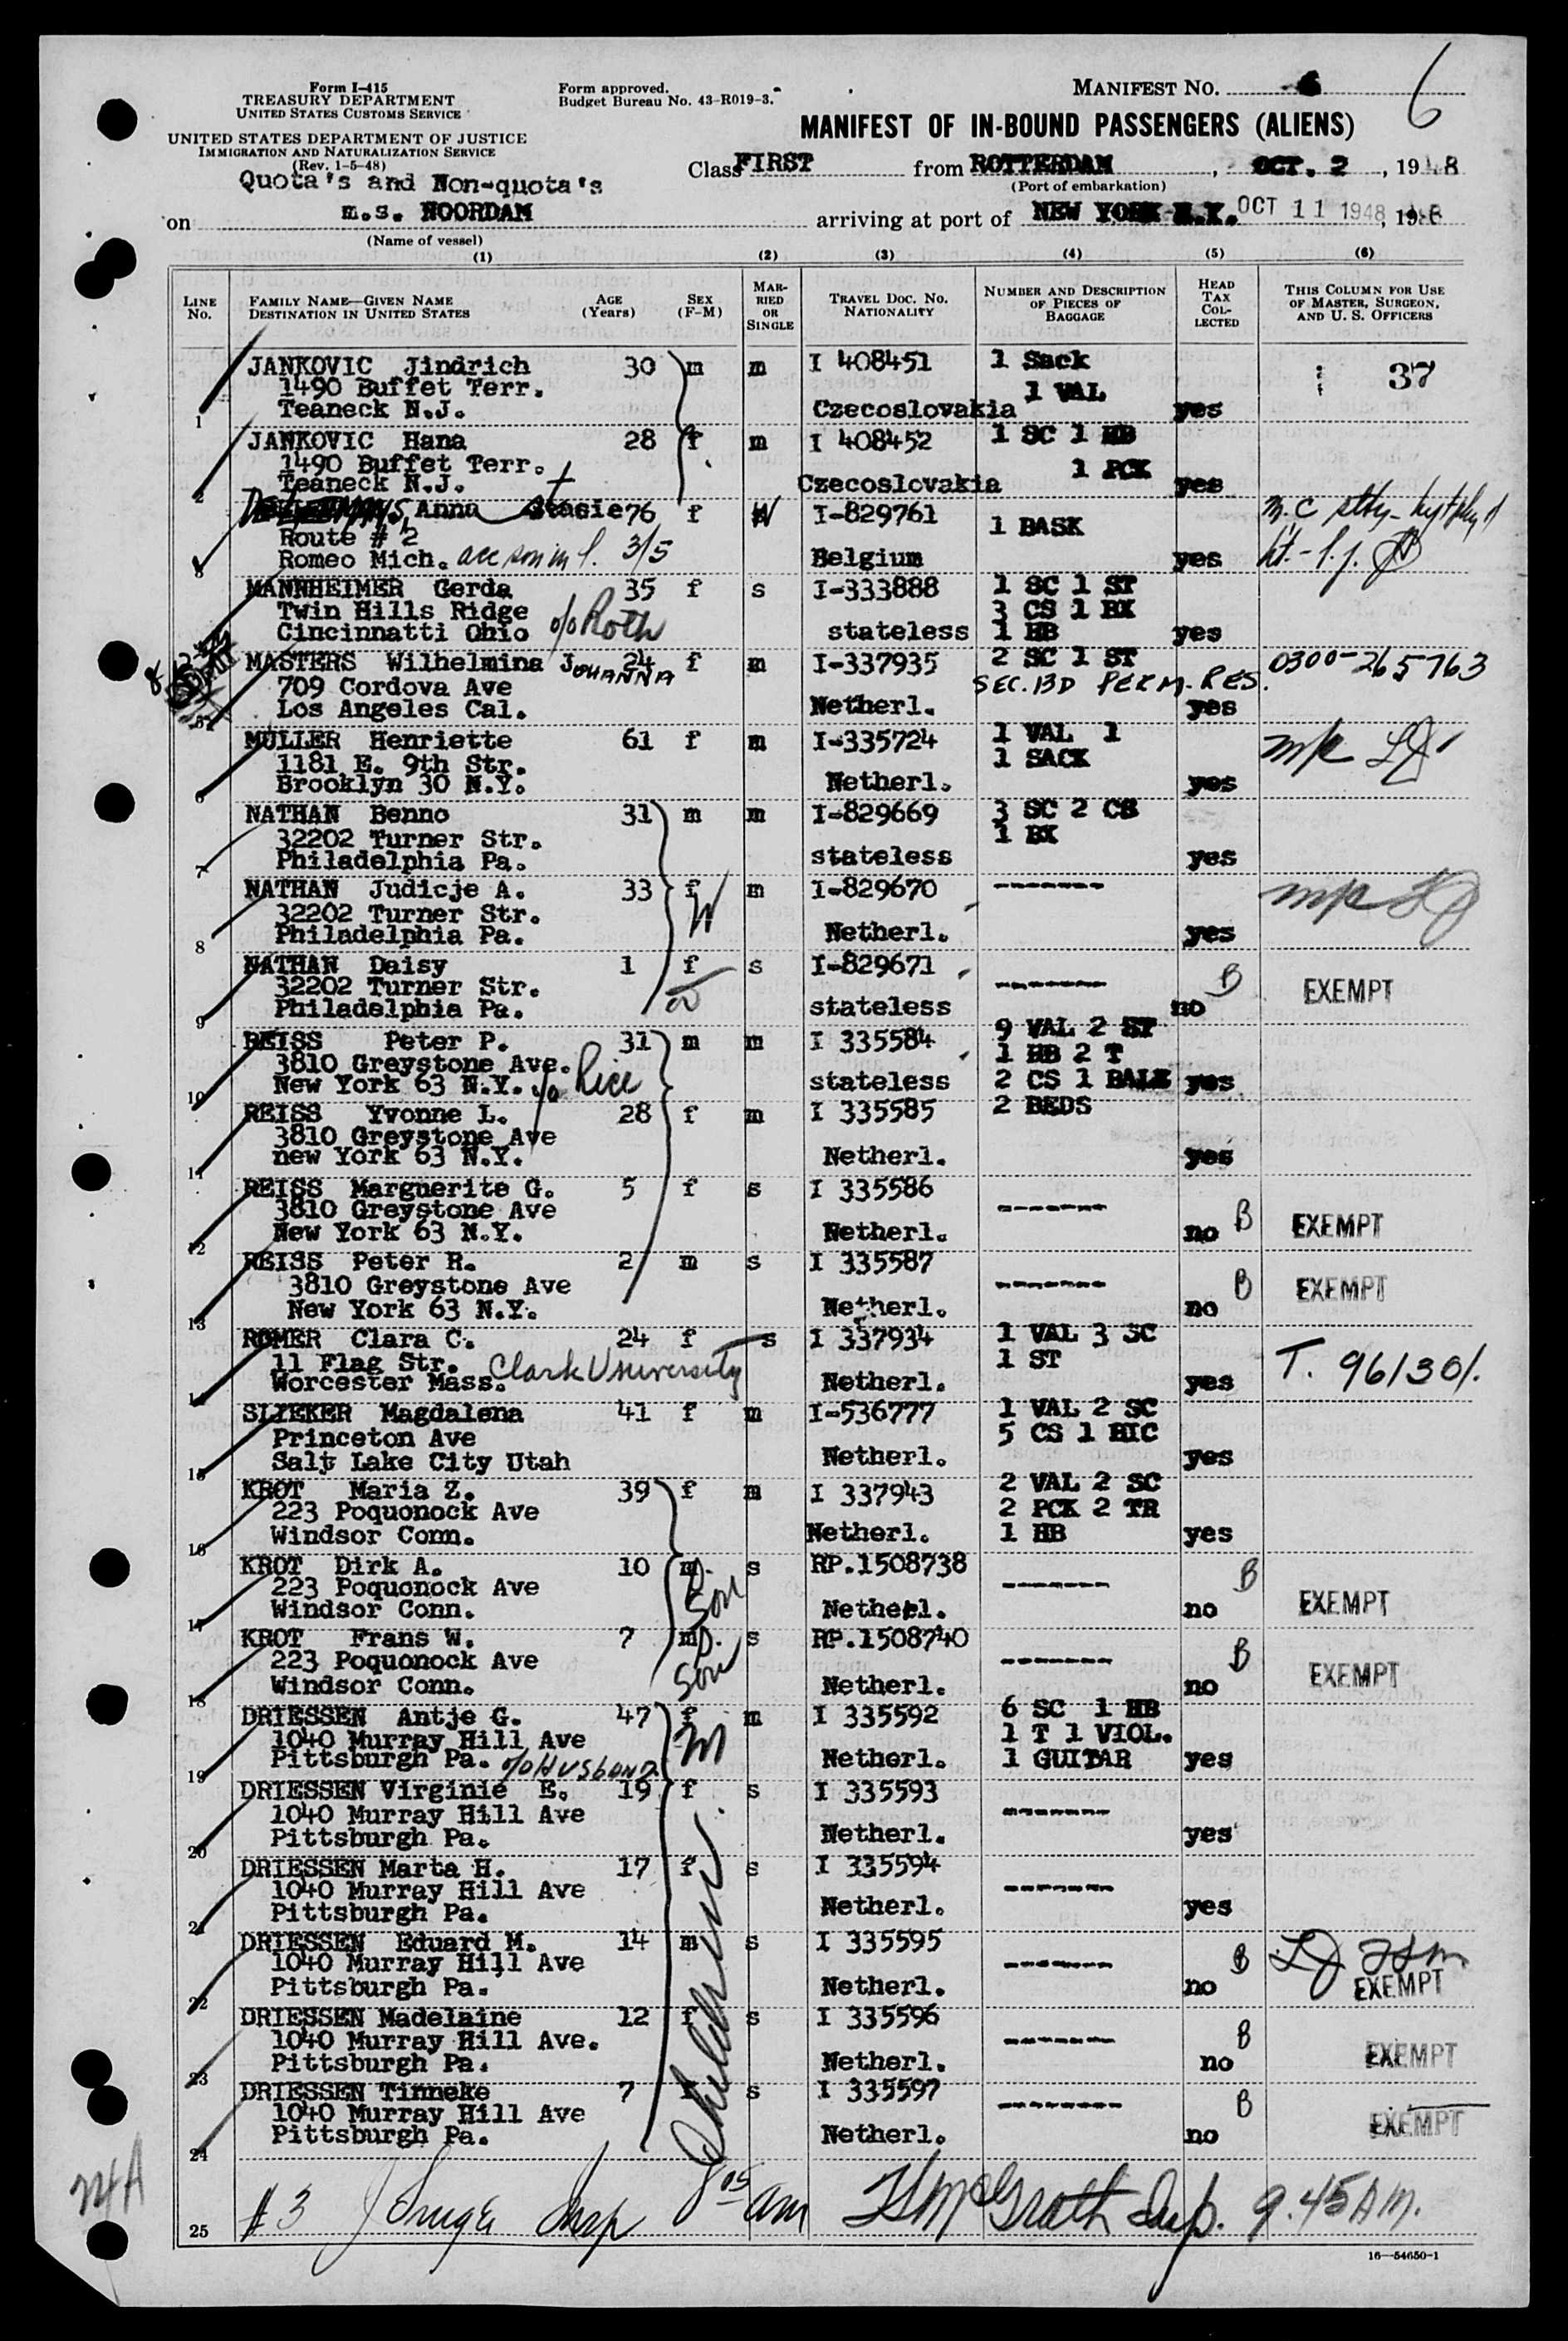 Form I-415
TREASURY DEPARTMENT
UNITED STATES CUSTOMS SERVICE
UNITED STATES DEPARTMENT OF JUSTICE
IMMIGRATION AND NATURALIZATION SERVICE
(Rev. 1-5-48)
Form approved.
Budget Bureau No. 43-R019-3.
MANIFEST NO. 6
6
MANIFEST OF IN-BOUND PASSENGERS (ALIENS)
Quota's and Non-quota's
Class FIRST from ROTTERDAM, OCT. 2, 1948
(Port of embarkation)
on m.s. NOORDAM arriving at port of NEW YORK N.Y. OCT 11 1948, 1948
(Name of vessel)
(1) (2) (3) (4) (5) (6)
LINE No.
FAMILY NAME—GIVEN NAME
DESTINATION IN UNITED STATES
AGE (Years)
SEX (F-M)
MARRIED OR SINGLE
TRAVEL DOC. NO. NATIONALITY
NUMBER AND DESCRIPTION OF PIECES OF BAGGAGE
HEAD TAX COLLECTED
THIS COLUMN FOR USE OF MASTER, SURGEON, AND U. S. OFFICERS
JANKOVIC Jindrich 30 m m I 408451 1 Sack 37
1490 Buffet Terr. 1 VAL
1 Teaneck N.J. Czecoslovakia yes
JANKOVIC Hana 28 f m I 408452 1 SC 1 HB
1490 Buffet Terr. 1 PCK
2 Teaneck N.J. Czecoslovakia yes
Anna Stasie 76 f W I-829761 1 BASK
Route # 2
3 Romeo Mich. acc son in l. 3/5 Belgium yes
MANNHEIMER Gerda 35 f s I-333888 1 SC 1 ST
Twin Hills Ridge 3 CS 1 BX
Cincinnatti Ohio c/o Roth stateless 1 HB yes
MASTERS Wilhelmina JOHANNA 24 f m I-337935 2 SC 1 ST 0300-265763
709 Cordova Ave SEC. 13D PERM. RES.
5 Los Angeles Cal. Netherl. yes
MULLER Henriette 61 f m I-335724 1 VAL 1
1181 E. 9th Str. 1 SACK
6 Brooklyn 30 N.Y. Netherl. yes
NATHAN Benno 31 m m I-829669 3 SC 2 CS
32202 Turner Str. 1 BX
7 Philadelphia Pa. stateless yes
NATHAN Judicje A. 33 f m I-829670 -------
32202 Turner Str. W
8 Philadelphia Pa. Netherl. yes
NATHAN Daisy 1 f s I-829671 ------- B
32202 Turner Str. EXEMPT
9 Philadelphia Pa. stateless no
REISS Peter P. 31 m m I 335584 9 VAL 2 ST
3810 Greystone Ave. 1 HB 2 T
10 New York 63 N.Y. c/o Rice stateless 2 CS 1 BALE yes
REISS Yvonne L. 28 f m I 335585 2 BEDS
3810 Greystone Ave
11 new York 63 N.Y. Netherl. yes
REISS Marguerite G. 5 f s I 335586 -------
3810 Greystone Ave
12 New York 63 N.Y. Netherl. no B EXEMPT
REISS Peter R. 2 m s I 335587 -------
3810 Greystone Ave B EXEMPT
13 New York 63 N.Y. Netherl. no
ROMER Clara C. 24 f s I 337934 1 VAL 3 SC
11 Flag Str. Clark University 1 ST T. 96130/.
14 Worcester Mass. Netherl. yes
SLIEKER Magdalena 41 f m I-536777 1 VAL 2 SC
Princeton Ave 5 CS 1 BIC
15 Salt Lake City Utah Netherl. yes
KROT Maria Z. 39 f m I 337943 2 VAL 2 SC
223 Poquonock Ave 2 PCK 2 TR
16 Windsor Conn. Netherl. 1 HB yes
KROT Dirk A. 10 m s RP.1508738 ------- B
223 Poquonock Ave Son
17 Windsor Conn. Netherl. no EXEMPT
KROT Frans W. 7 m s RP.1508740 ------- B
223 Poquonock Ave Son
18 Windsor Conn. Netherl. no EXEMPT
DRIESSEN Antje G. 47 f m I 335592 6 SC 1 HB
1040 Murray Hill Ave M 1 T 1 VIOL.
19 Pittsburgh Pa. c/o Husband Netherl. 1 GUITAR yes
DRIESSEN Virginie E. 19 f s I 335593 -------
1040 Murray Hill Ave
20 Pittsburgh Pa. Netherl. yes
DRIESSEN Marta H. 17 f s I 335594 -------
1040 Murray Hill Ave
21 Pittsburgh Pa. Netherl. yes
Children
DRIESSEN Eduard M. 14 m s I 335595 -------
1040 Murray Hill Ave B
22 Pittsburgh Pa. Netherl. no EXEMPT
DRIESSEN Madelaine 12 f s I 335596 -------
1040 Murray Hill Ave. B
23 Pittsburgh Pa. Netherl. no EXEMPT
DRIESSEN Tinneke 7 f s I 335597 -------
1040 Murray Hill Ave B
24 Pittsburgh Pa. Netherl. no EXEMPT
25 # 3 Insp 8 05 am McGrath Insp. 9.45 AM.
16—54650-1